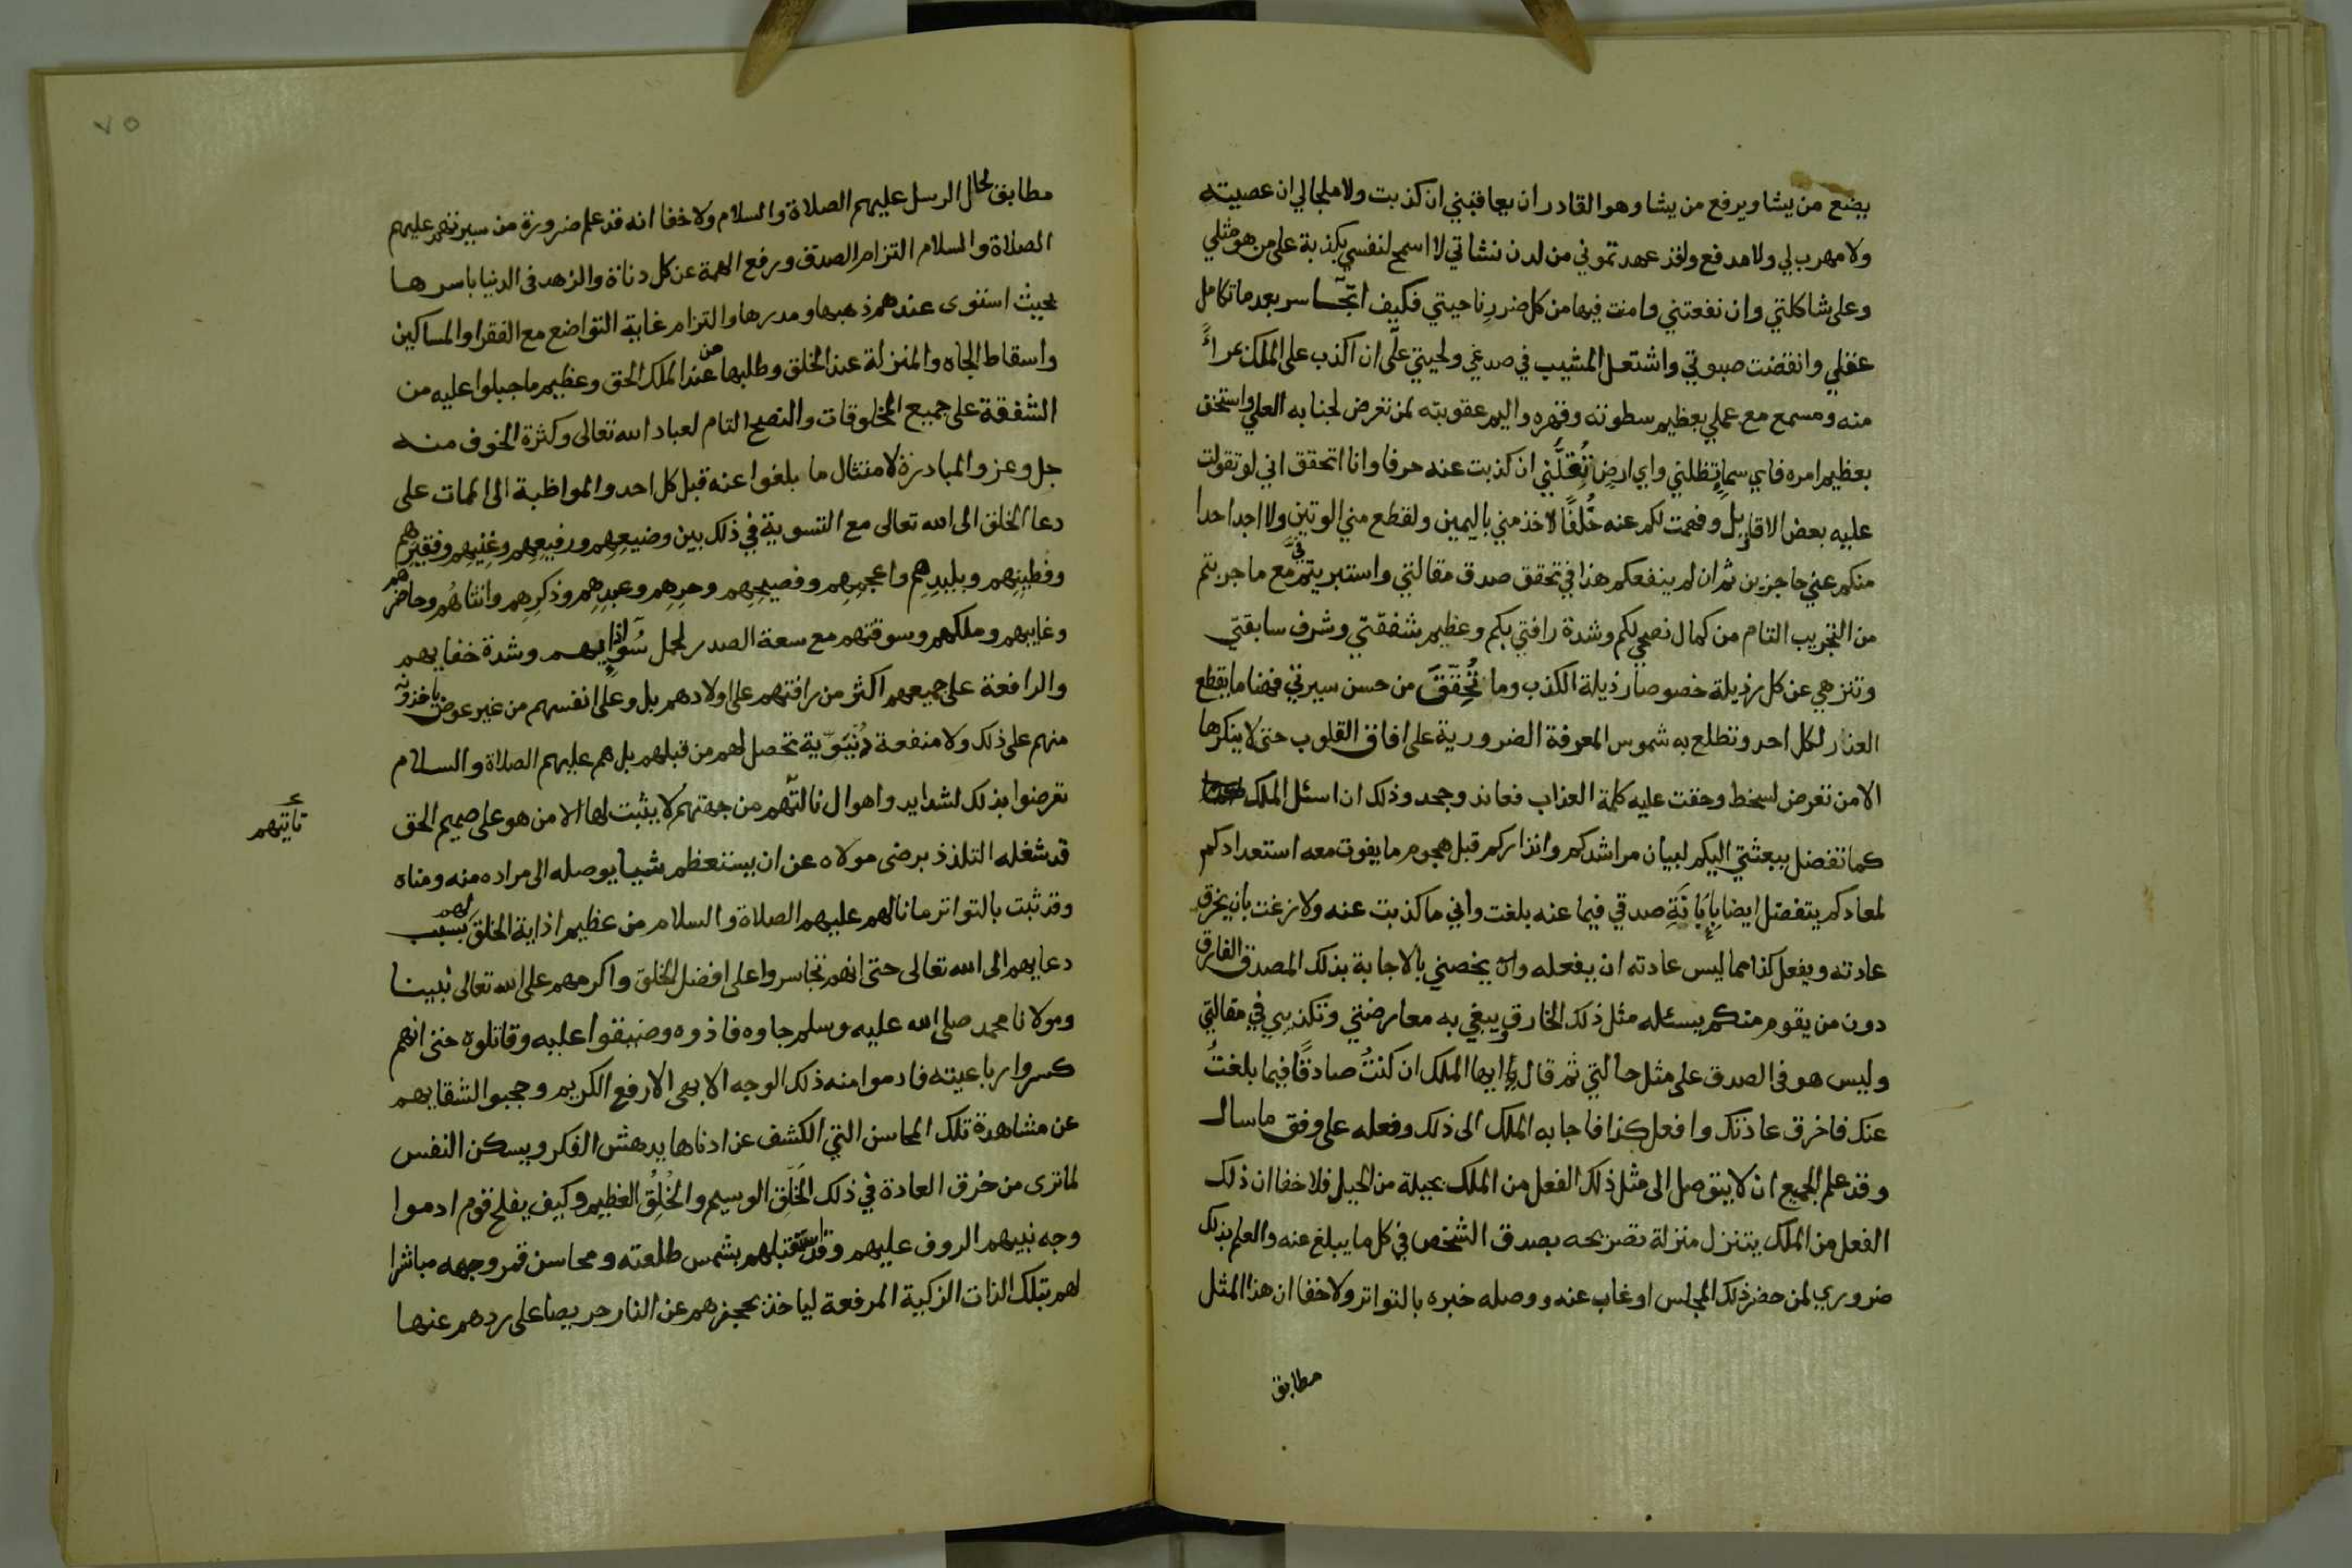 يضع من يشا ويرفع من يشا وهو القادر ان يعاقبني ان كذبت ولا ملجا لي ان عصيته
ولا مهرب لي ولا مدفع ولقد عهدتموني من لدن نشاتي لا اسمح لنفسي بكذبة على من هو مثلي
وعلى شاكلتي وان نفعتني وامنت فيها من كل ضرر ناحيتي فكيف اتجاسر بعد ما تكامل
عقلي وانقضت صبوتي واشتعل المشيب في صدغي ولحيتي على ان اكذب على الملك بمراءً
منه ومسمع مع علمي بعظيم سطوته وقهره واليم عقوبته لمن تعرض لجنابه العلي واستخف
بعظيم امره فاي سماءٍ تظلني واي ارضٍ تُقلُّني ان كذبت عنه حرفا وانا اتحقق اني لو تقولت
عليه بعض الاقاويل وفهمت لكم عنه خُلفًا لاخذ مني باليمين ولقطع مني الوتين ولا اجد احدا
منكم عني حاجزين ثم ان لم ينفعكم هذا في تحقق صدق مقالتي واستبريتم فيَّ مع ما جربتم
من التجريب التام من كمال نصحي لكم وشدة رافتي بكم وعظيم شفقتي وشرف سابقتي
وتنزهي عن كل رذيلة خصوصا رذيلة الكذب وما تُحقِّقَ من حسن سيرتي فهنا ما يقطع
العذار لكل احد وتطلع به شموس المعرفة الضرورية على افاق القلوب حتى لا ينكرها
الا من تعرض لسخط وحقت عليه كلمة العذاب فعاند وجحد وذلك ان اسئل الملك
كما تفضل ببعثتي اليكم لبيان مراشدكم وانذاركم قبل هجوم ما يفوت معه استعدادكم
لمعادكم يتفضل ايضا بإبانَةِ صدقي فيما عنه بلغت واني ما كذبت عنه ولا زغت بان يخرق
عادته ويفعل كذا مما ليس عادته ان يفعله وان يخصني بالاجابة بذلك المصدق الفارق
دون من يقوم منكم يسئله مثل ذلك الخارق يبغي به معارضتي وتكذيبي في مقالتي
وليس هو في الصدق على مثل حالتي ثم قال يا ايها الملك ان كنتُ صادقًا فيما بلغتُ
عنك فاخرق عادتك وافعل كذا فاجابه الملك الى ذلك وفعله على وفق ما سال
وقد علم الجميع ان لا يتوصل الى مثل ذلك الفعل من الملك بحيلة من الحيل فلا خفا ان ذلك
الفعل من الملك يتنزل منزلة تصريحه بصدق الشخص في كل ما يبلغ عنه والعلم بذلك
ضروري لمن حضر ذلك المجلس او غاب عنه ووصله خبره بالتواتر ولا خفا ان هذا المثل
مطابق
٧٥
مطابق لحال الرسل عليهم الصلاة والسلام ولا خفا انه قد علم ضرورة من سيرتهم عليهم
الصلاة والسلام التزام الصدق ورفع الهمة عن كل دناة والزهد في الدنيا باسرها
بحيث استوى عندهم ذهبها ومدرها والتزام غاية التواضع مع الفقرا والمساكين
واسقاط الجاه والمنزلة عند الخلق وطلبها من عند الملك الحق وعظيم ما جبلوا عليه من
الشفقة على جميع المخلوقات والنصح التام لعباد الله تعالى وكثرة الخوف منه
جل وعز والمبادرة لامتثال ما بلغوا عنه قبل كل احد والمواظبة الى الممات على
دعا الخلق الى الله تعالى مع التسوية في ذلك بين وضيعِهِم ورفيعِهِم وغنِيِهِم وفقيرهم
وفطينِهم وبليدِهِم واعجمِهِم وفصيحِهِم وحرِهِم وعبدِهِم وذكرِهِم وانثاهُم وحاضرهم
وغايبهم وملكهم وسوقتهم مع سعة الصدر لحمل سُوءِ اذايهم وشدة خفايهم
والرافعة على جميعهم اكثر من رافتهم على اولادهم بل وعلى انفسهم من غير عوض ياخذونه
منهم على ذلك ولا منفعة دُنيَوِيَة تحصل لهم من قبلهم بل هم عليهم الصلاة والسلام
تعرضوا بذلك لشدايد واهوال نالتهم من جهتهم لا يثبت لها الا من هو على صميم الحق
تاتيهم
قد شغله التلذذ برضى مولاه عن ان يستعظم شيا يوصله الى مراده منه ومناه
وقد ثبت بالتواتر ما نالهم عليهم الصلاة والسلام من عظيم اذاية الخلق لهم بسبب
دعايهم الى الله تعالى حتى انهم تجاسروا على افضل الخلق واكرمهم على الله تعالى نبينا
ومولانا محمد صلى الله عليه وسلم جاوه فاذوه وضيقوا عليه وقاتلوه حتى انهم
كسروا رباعيته فادموا منه ذلك الوجه الابهى الارفع الكريم وحجبوا لشقايهم
عن مشاهدة تلك المحاسن التي الكشف عن ادناها يدهش الفكر ويسكن النفس
لما ترى من خرق العادة في ذلك الخَلْق الوسيم والخُلُق العظيم وكيف يفلح قوم ادموا
وجه نبيهم الروف عليهم وقد استقبلهم بشمس طلعته ومحاسن قمر وجهه مباشرا
لهم بتلك الذات الزكية المرفعة لياخذ بحجزهم عن النار حريصا على ردهم عنها